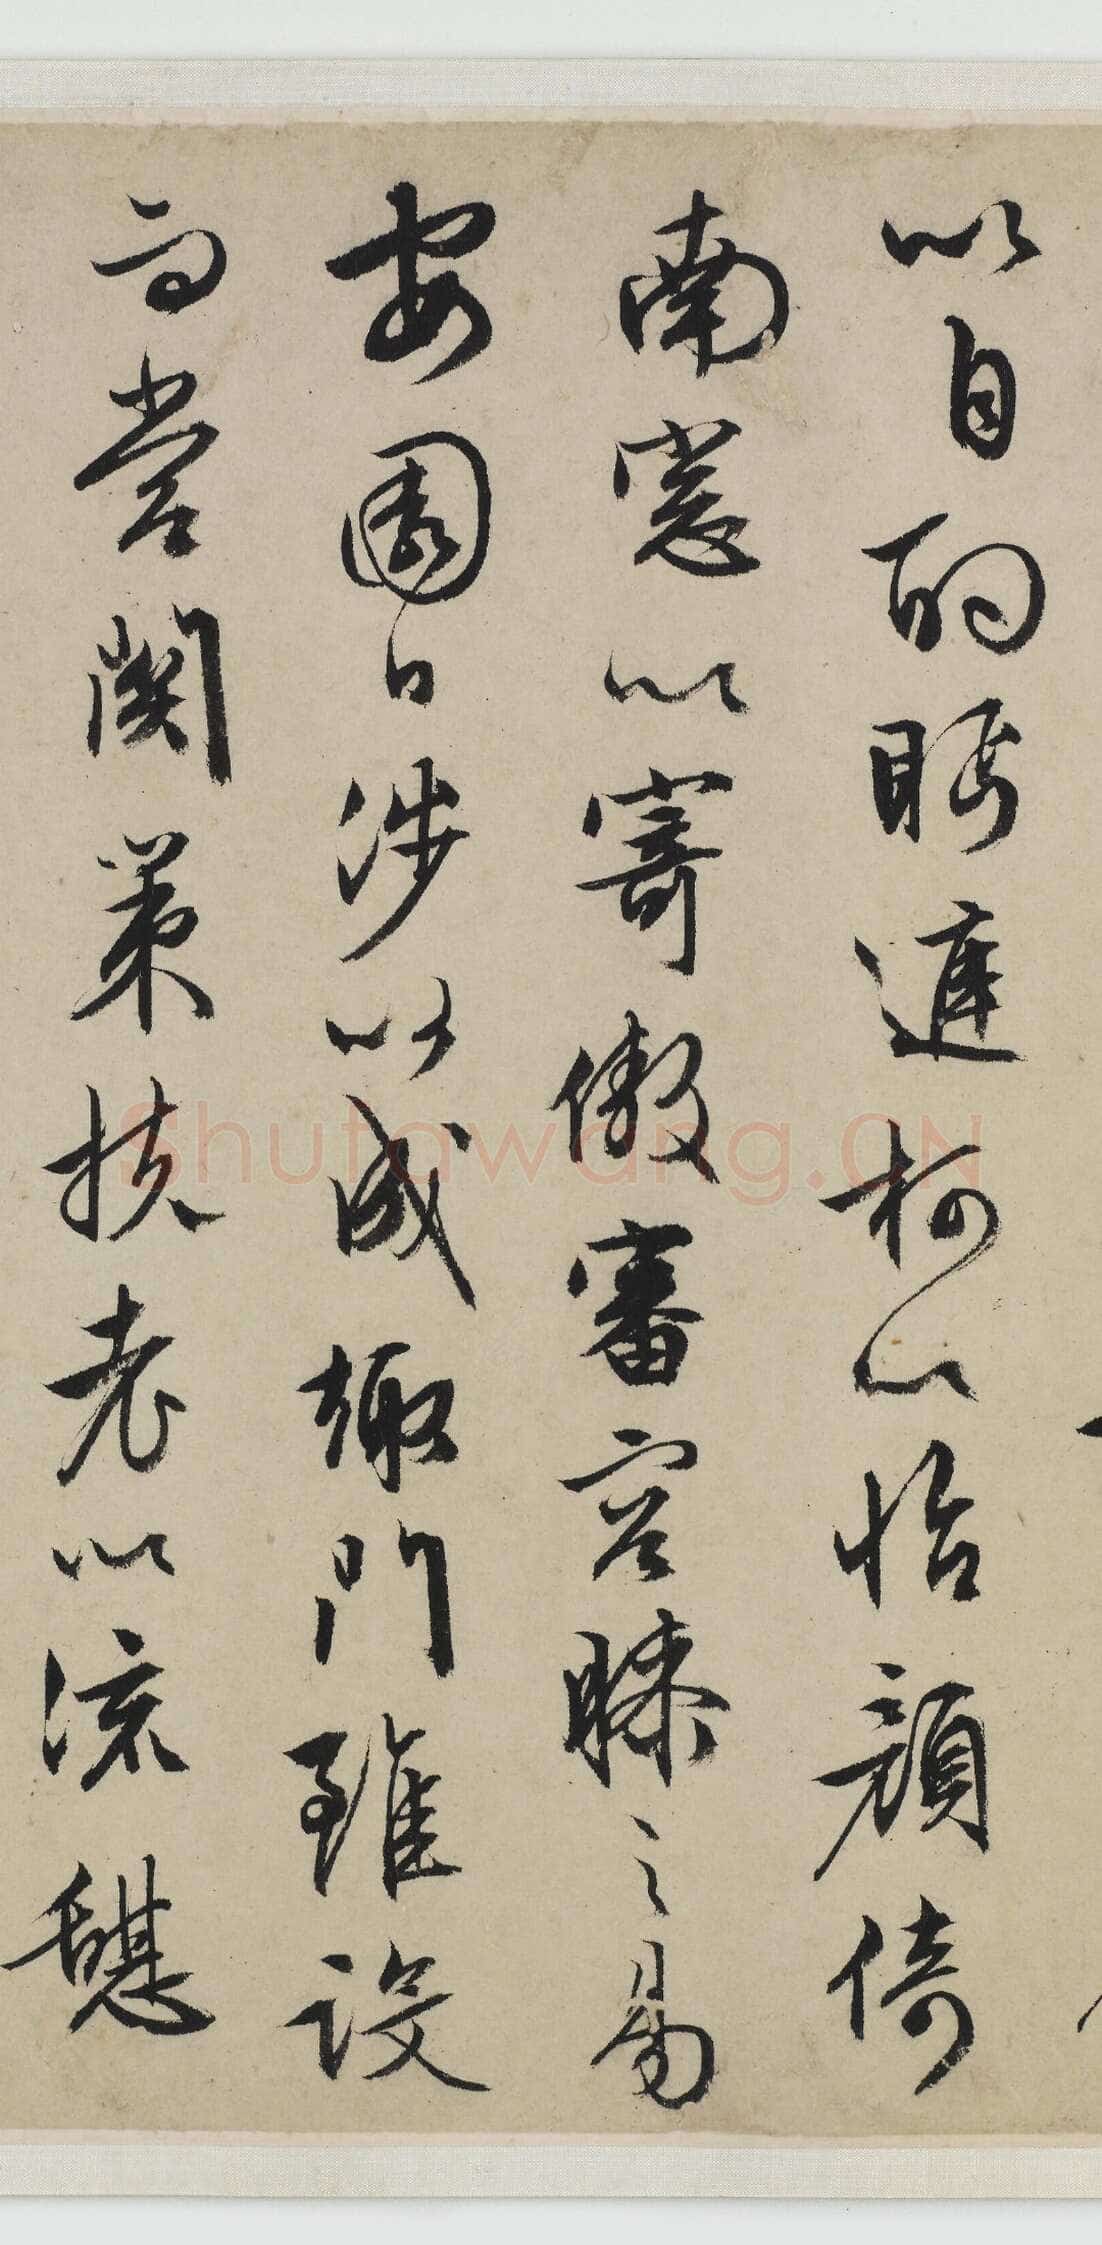 以自酌眄進柯以怡顏倚
南窓以寄傲審容膝之易
安園日涉以成趣門雖設
而常關策扶老以流憩
Shufawang.CN